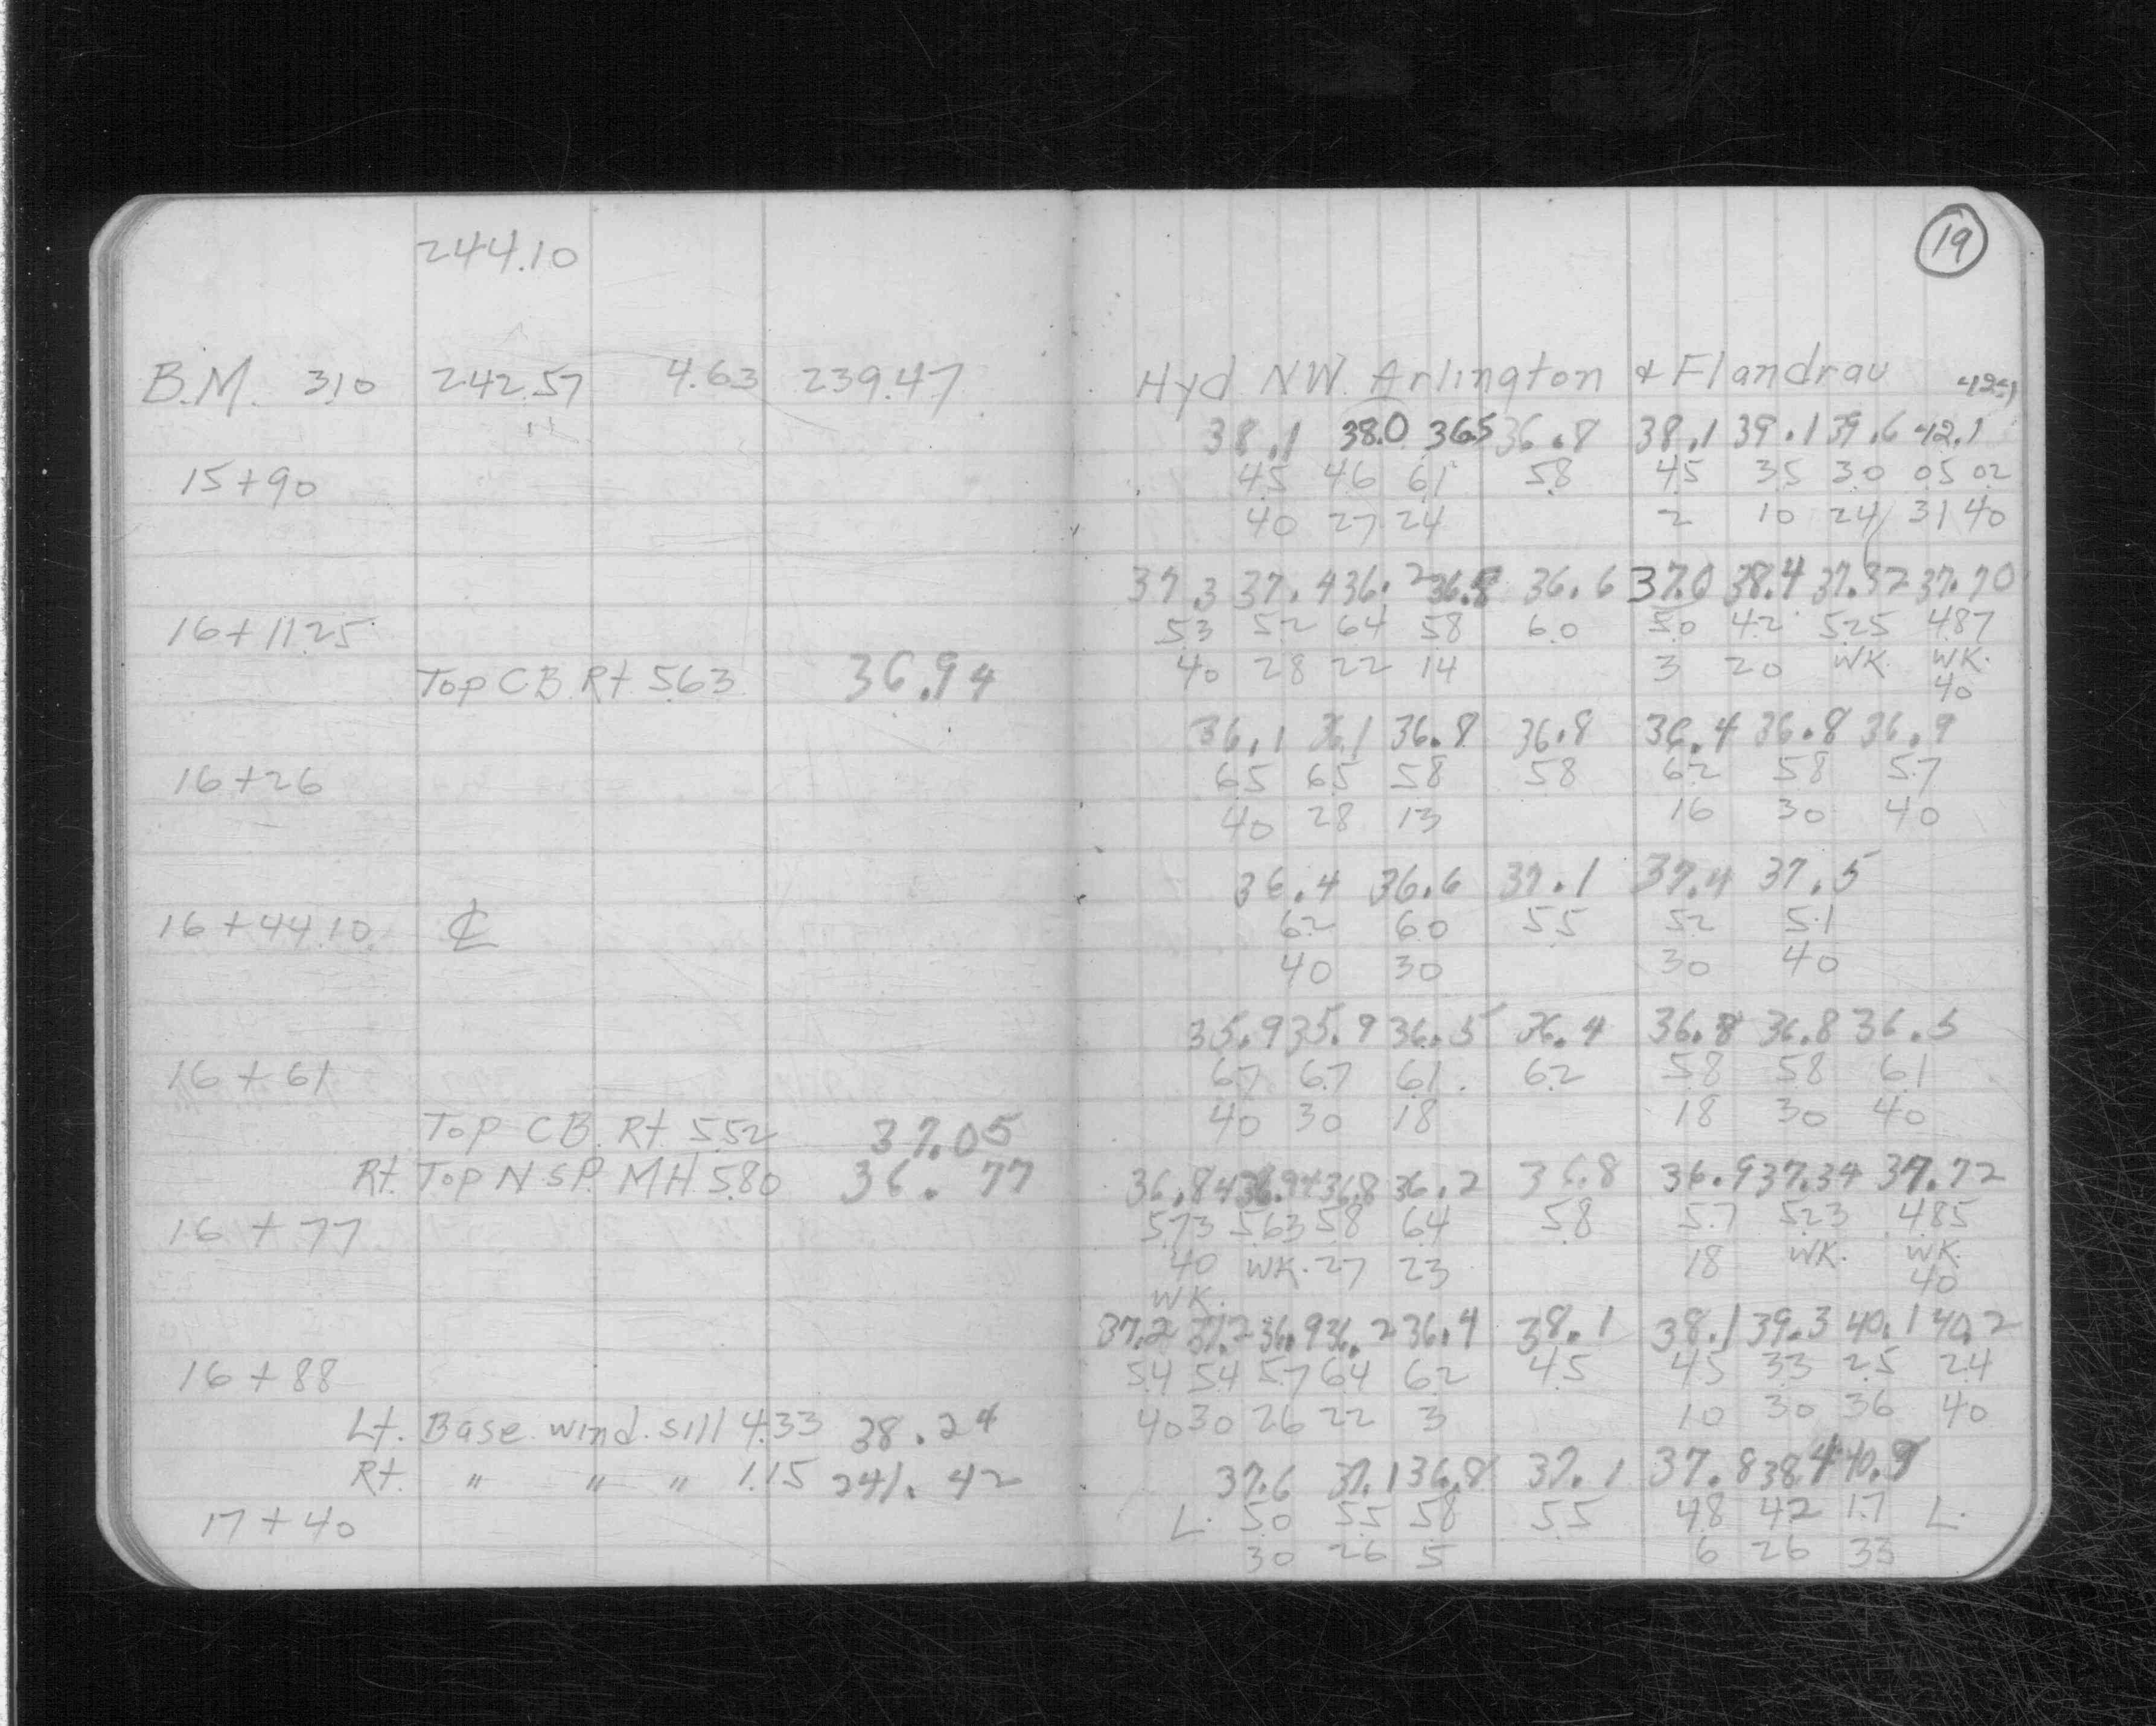 244.10
B.M. 3.10 242.57 4.63 239.47
15+90
16+11.25
Top C.B. Rt. 5.63 36.94
16+26
16+44.10 ℄
16+61
Top C.B. Rt. 5.52 37.05
Rt. Top N.S.P. MH 5.80 36.77
16+77
16+88
Lt. Base wind. sill 4.33 38.24
Rt. " " " 1.15 241.42
17+40
19
Hyd NW. Arlington & Flandrau
38.1 38.0 36.5 36.8 38.1 39.1 39.6 42.1 42.4
4.5 4.6 6.1 5.8 4.5 3.5 3.0 0.5 0.2
40 27 24 2 10 24 31 40
37.3 37.4 36.2 36.8 36.6 37.0 38.4 37.32 37.70
5.3 5.2 6.4 5.8 6.0 5.0 4.2 5.25 4.87
40 28 22 14 3 20 WK. WK.
40
36.1 36.1 36.8 36.8 36.4 36.8 36.9
6.5 6.5 5.8 5.8 6.2 5.8 5.7
40 28 13 16 30 40
36.4 36.6 37.1 37.4 37.5
6.2 6.0 5.5 5.2 5.1
40 30 30 40
35.9 35.9 36.5 36.4 36.8 36.8 36.5
6.7 6.7 6.1 6.2 5.8 5.8 6.1
40 30 18 18 30 40
36.84 36.94 36.8 36.2 36.8 36.9 37.34 37.72
5.73 5.63 5.8 6.4 5.8 5.7 5.23 4.85
40 WK. 27 23 18 WK. WK.
WK. 40
37.2 37.2 36.9 36.2 36.4 38.1 38.1 39.3 40.1 40.2
5.4 5.4 5.7 6.4 6.2 4.5 4.5 3.3 2.5 2.4
40 30 26 22 3 10 30 36 40
37.6 37.1 36.8 37.1 37.8 38.4 40.9
L. 5.0 5.5 5.8 5.5 4.8 4.2 1.7 L.
30 26 5 6 26 33